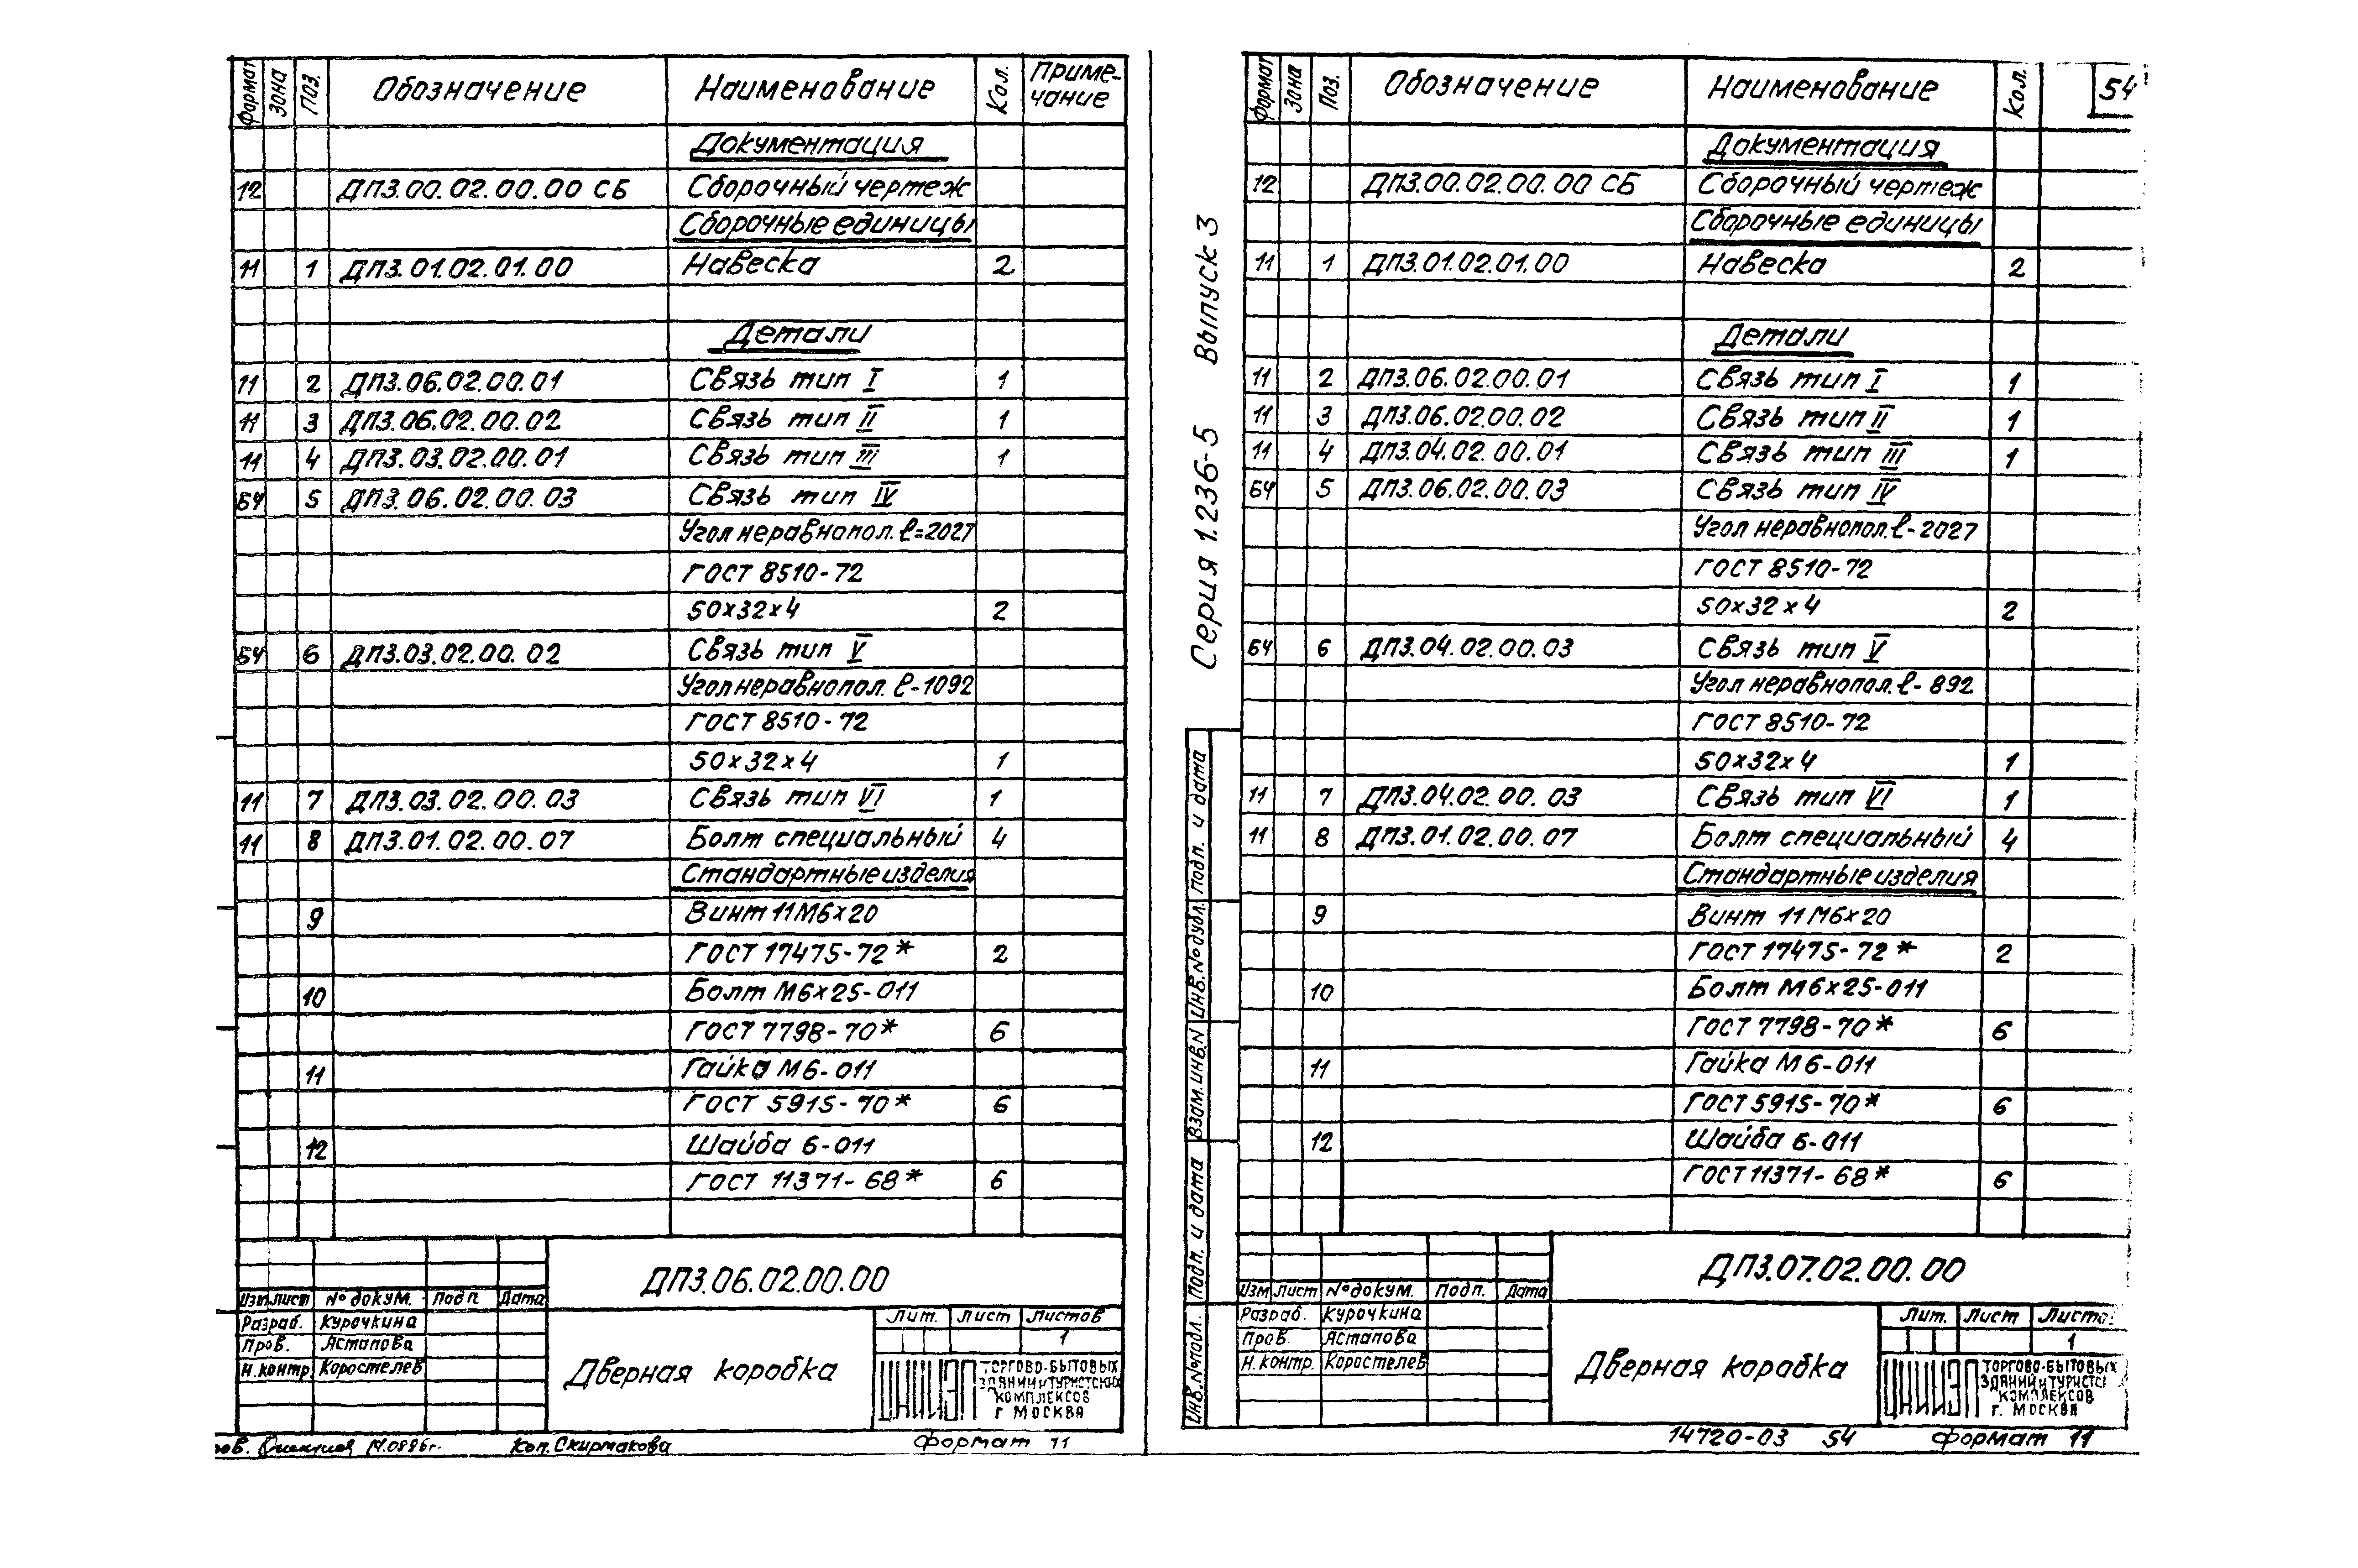 Формат Зона Поз. Обозначение Наименование Кол. Приме-чание
Документация
12 ДП3.00.02.00.00 СБ Сборочный чертеж
Сборочные единицы
11 1 ДП3.01.02.01.00 Навеска 2
Детали
11 2 ДП3.06.02.00.01 Связь тип I 1
11 3 ДП3.06.02.00.02 Связь тип II 1
11 4 ДП3.03.02.00.01 Связь тип III 1
БЧ 5 ДП3.06.02.00.03 Связь тип IV
Угол неравнопол. ℓ=2027
ГОСТ 8510-72
50х32х4 2
БЧ 6 ДП3.03.02.00.02 Связь тип V
Угол неравнопол. ℓ-1092
ГОСТ 8510-72
50х32х4 1
11 7 ДП3.03.02.00.03 Связь тип VI 1
11 8 ДП3.01.02.00.07 Болт специальный 4
Стандартные изделия
9 Винт 11М6х20
ГОСТ 17475-72* 2
10 Болт М6х25-011
ГОСТ 7798-70* 6
11 Гайка М6-011
ГОСТ 5915-70* 6
12 Шайба 6-011
ГОСТ 11371-68* 6
ДП3.06.02.00.00
Изм Лист № докум. Подп Дата
Разраб. Курочкина
Пров. Астапова
Н.контр. Коростелев
Дверная коробка
Лит. Лист Листов
1
ЦНИИЭП
ТОРГОВО-БЫТОВЫХ
ЗДАНИЙ И ТУРИСТСКИХ
КОМПЛЕКСОВ
г МОСКВА
Коп. Скирмакова Формат 11
Серия 1.236-5 Выпуск 3
Формат Зона Поз. Обозначение Наименование Кол. 54
Документация
12 ДП3.00.02.00.00 СБ Сборочный чертеж
Сборочные единицы
11 1 ДП3.01.02.01.00 Навеска 2
Детали
11 2 ДП3.06.02.00.01 Связь тип I 1
11 3 ДП3.06.02.00.02 Связь тип II 1
11 4 ДП3.04.02.00.01 Связь тип III 1
БЧ 5 ДП3.06.02.00.03 Связь тип IV
Угол неравнопол. ℓ-2027
ГОСТ 8510-72
50х32х4 2
БЧ 6 ДП3.04.02.00.03 Связь тип V
Угол неравнопол. ℓ-892
ГОСТ 8510-72
50х32х4 1
11 7 ДП3.04.02.00.03 Связь тип VI 1
11 8 ДП3.01.02.00.07 Болт специальный 4
Стандартные изделия
9 Винт 11М6х20
ГОСТ 17475-72* 2
10 Болт М6х25-011
ГОСТ 7798-70* 6
11 Гайка М6-011
ГОСТ 5915-70* 6
12 Шайба 6-011
ГОСТ 11371-68* 6
Инв.№подл. Подп. и дата Взам.инв.N Инв.№дубл. Подп. и дата
ДП3.07.02.00.00
Изм Лист № докум. Подп. Дата
Разраб. Курочкина
Пров. Астапова
Н.контр. Коростелев
Дверная коробка
Лит. Лист Листо
1
ЦНИИЭП
ТОРГОВО-БЫТОВЫХ
ЗДАНИЙ И ТУРИСТС
КОМПЛЕКСОВ
г. МОСКВА
14720-03 54 Формат 11